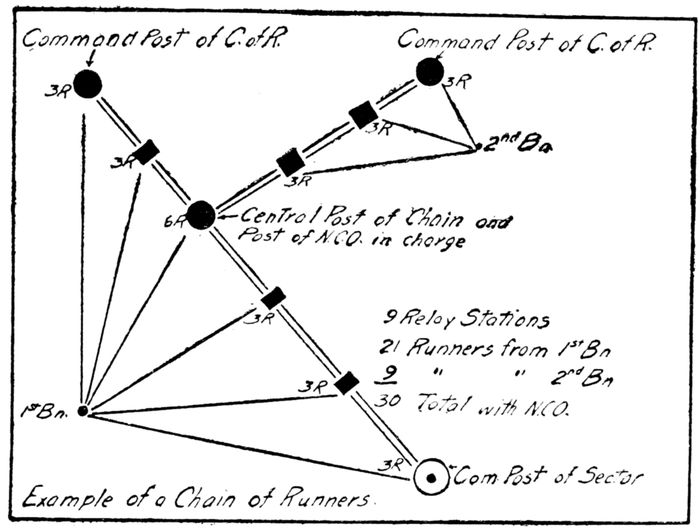 Command Post of C. of R.
Command Post of C. of R.
3R
3R
3R
3R
2nd Bn
3R
6R
Central Post of Chain and
Post of N.C.O. in charge
3R
9 Relay Stations
21 Runners from 1st Bn
9 " " 2nd Bn
30 Total with N.C.O.
3R
1st Bn.
3R
Com Post of Sector
Example of a Chain of Runners.